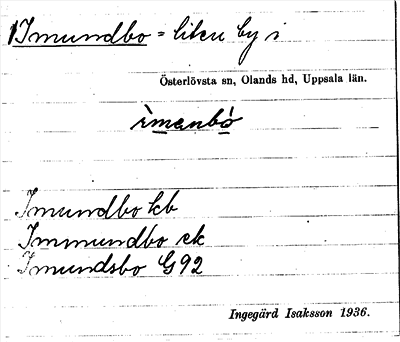 1) Imundbo = liten by i
Österlövsta sn, Olands hd, Uppsala län.
ìmenbò
Imundbo kb
Immundbo ek
Imundsbo G92
Ingegärd Isaksson 1936.